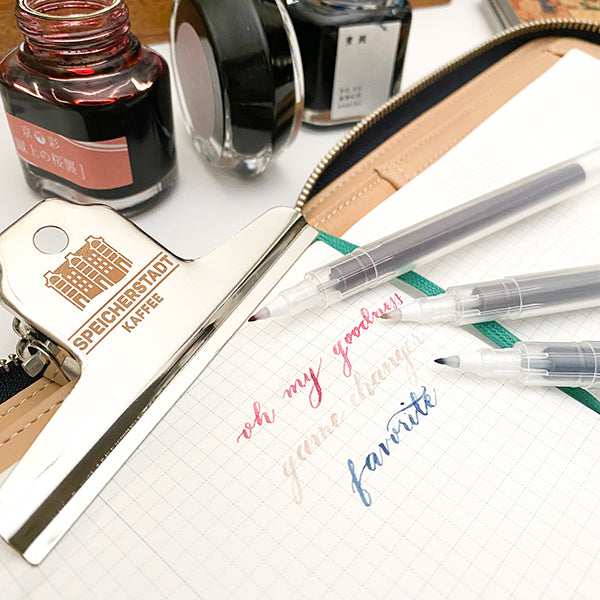 京の彩
SPEICHERSTADT
KAFFEE
oh my goodness
game changer
favorite